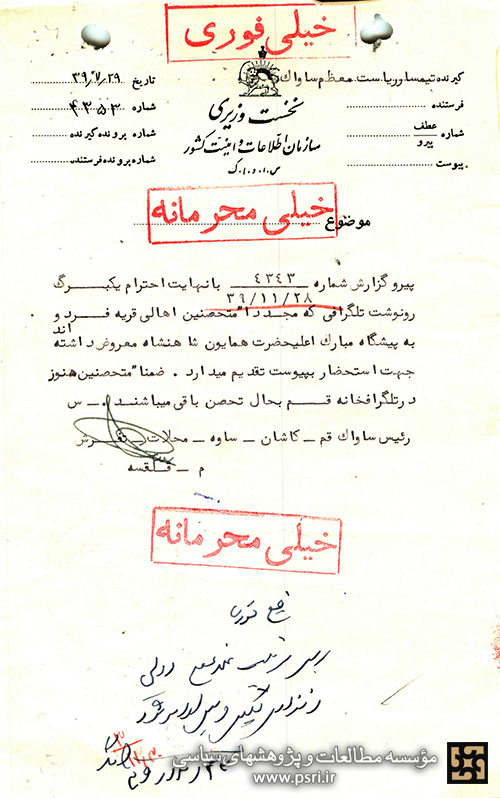 خیلی فوری
گیرنده تیمسار ریاست معظم ساواک
فرستنده
شماره عطف
پیرو
پیوست
نخست وزیری
سازمان اطلاعات و امنیت کشور
س.ا.و.ا.ک
تاریخ ۳۹/۱۱/۲۹
شماره ۴۳۵۳
شماره پرونده گیرنده
شماره پرونده فرستنده
خیلی محرمانه
موضوع
پیرو گزارش شماره ۴۳۴۳ بانهایت احترام یکبرگ
۳۹/۱۱/۲۸
رونوشت تلگرافی که مجددا" متحصنین اهالی قریه فرد و
به پیشگاه مبارک اعلیحضرت همایون شاهنشاه معروض داشته اند
جهت استحضار بپیوست تقدیم میدارد . ضمنا" متحصنین هنوز
درتلگرافخانه قم بحال تحصن باقی میباشند . س
رئیس ساواک قم ـ کاشان ـ ساوه ـ محلات ـ تفرش
م ـ قلقسه
خیلی محرمانه
مؤسسه مطالعات و پژوهشهای سیاسی
www.psri.ir